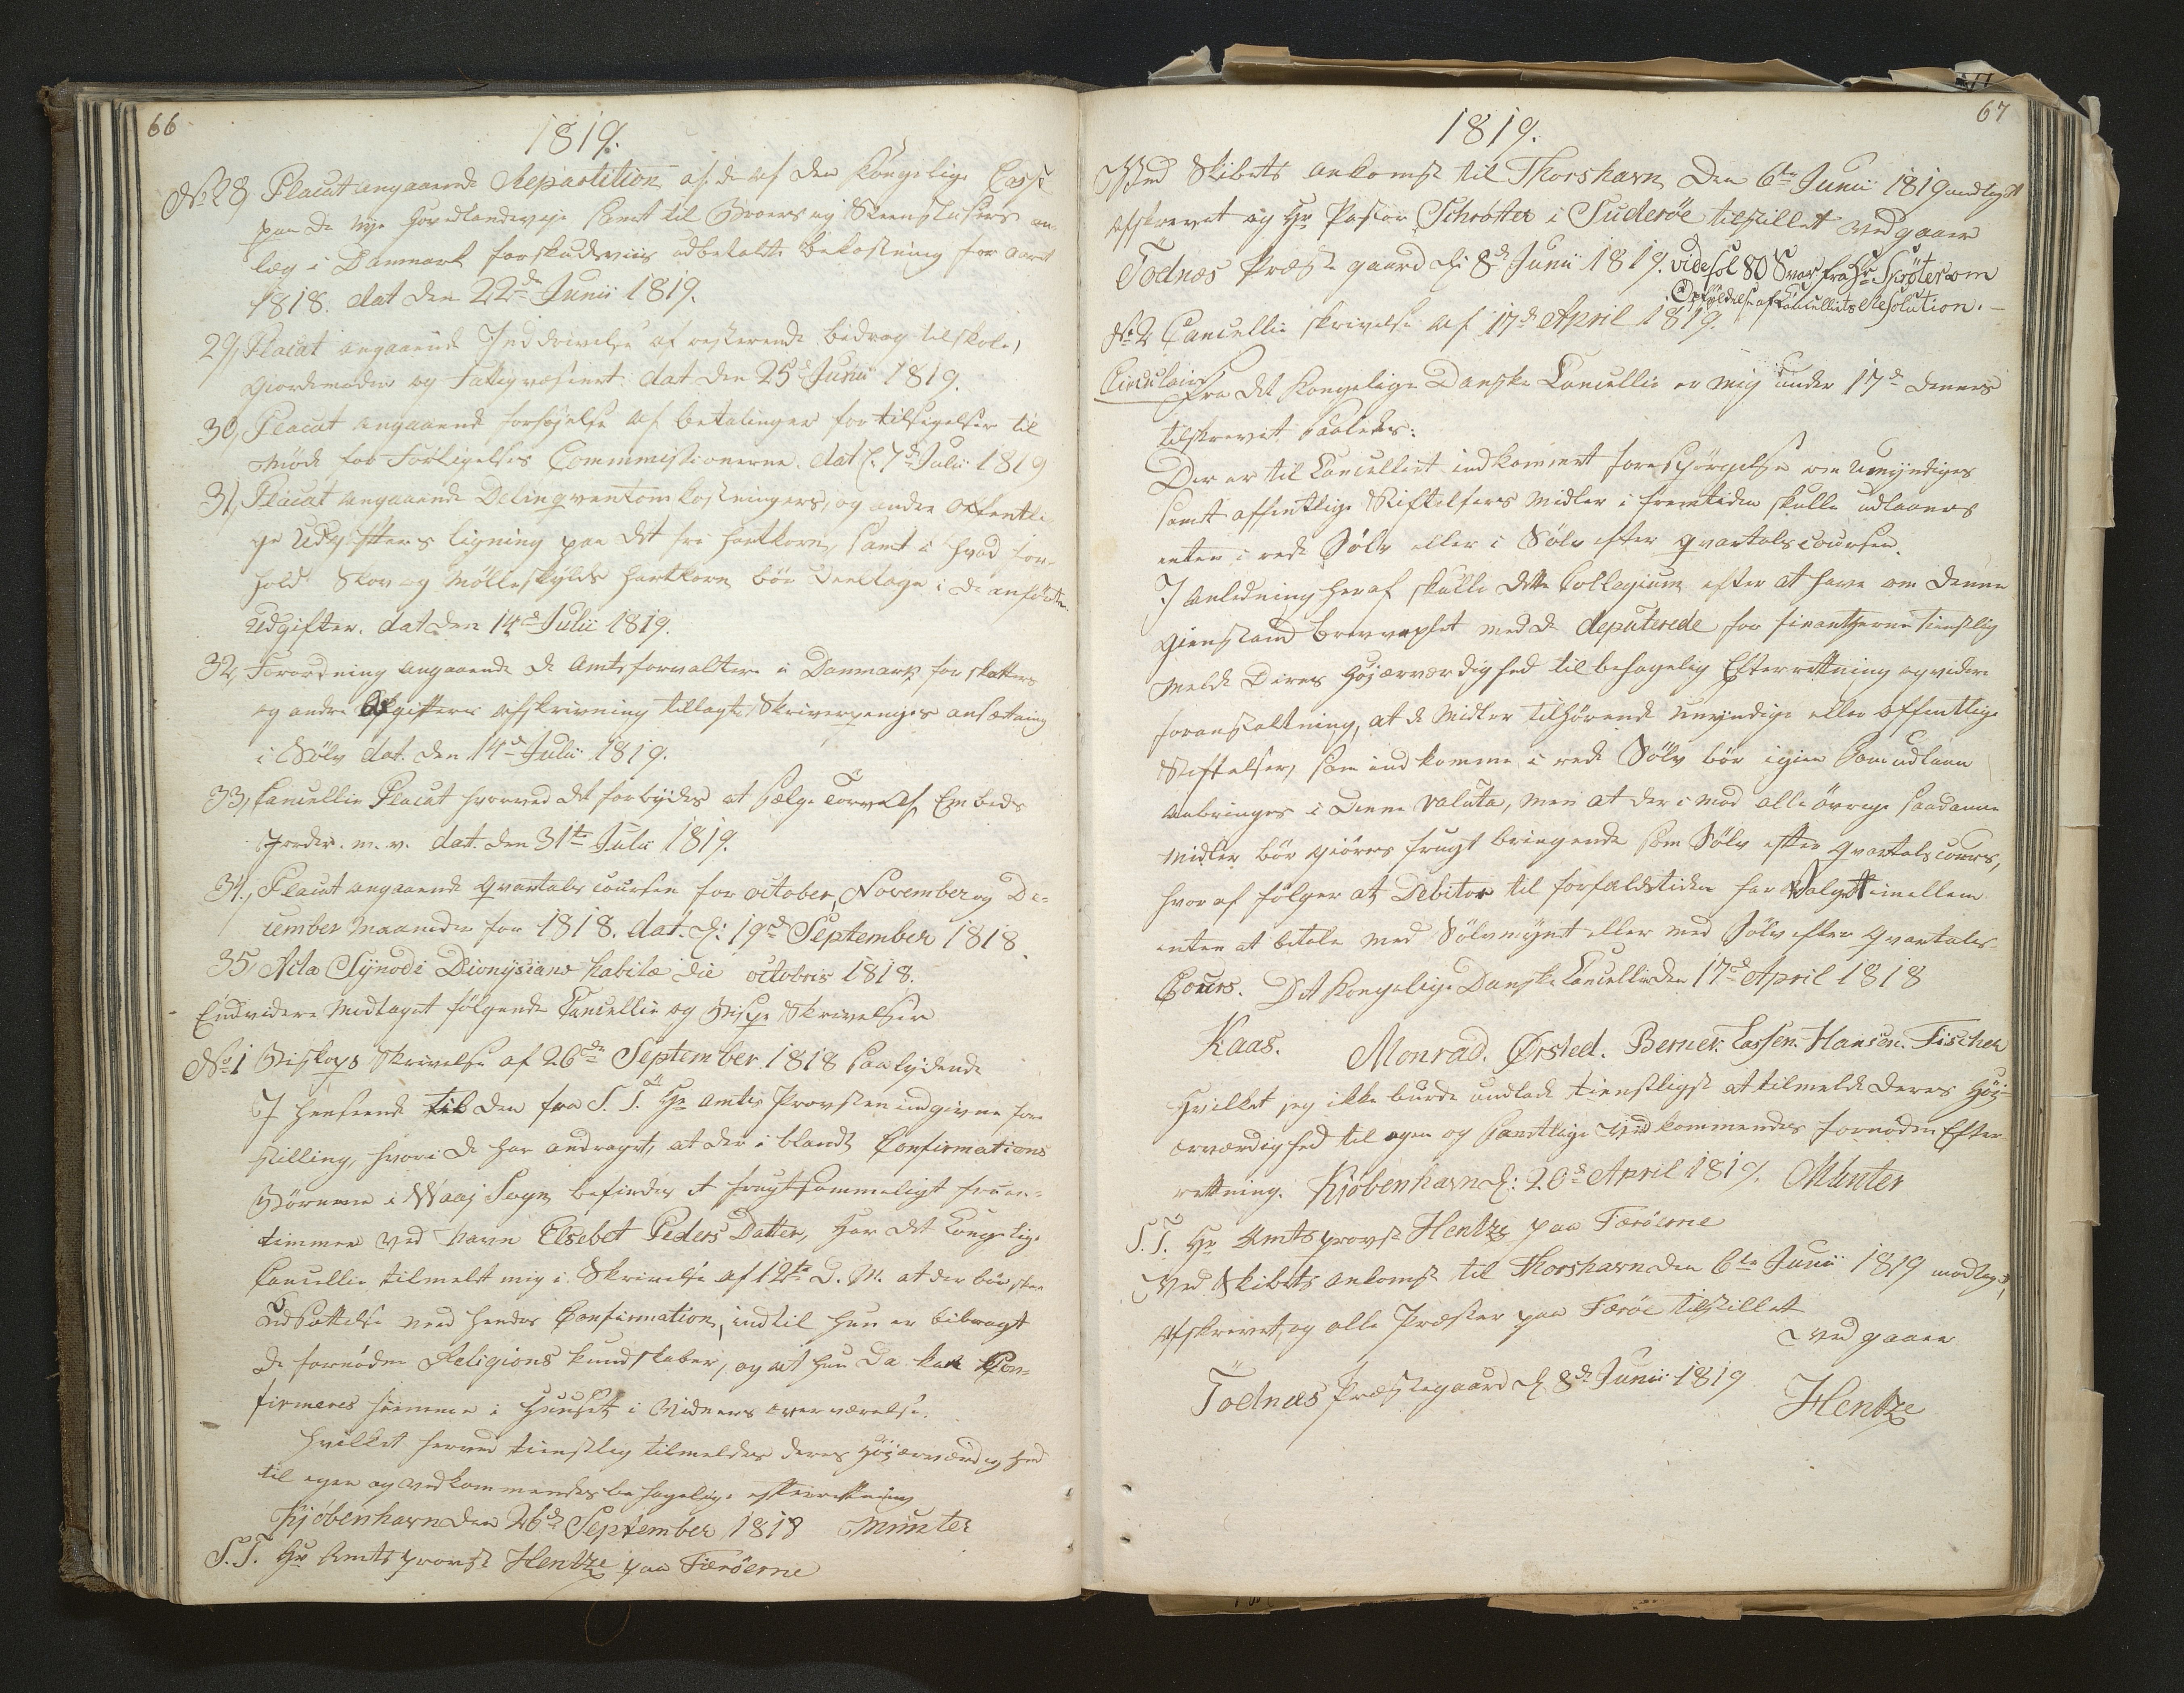 66
1819.
No 28, Placat angaaende Repartition af de af den Kongelige Casse
paa de nye Hovedlandeveje samt til Broers og Steenslusers an-
læg i Danmark forskudsviis udbetalte Bekostning for Aaret
1818. dat den 22de Junii 1819.
29, Placat angaaende Inddrivelse af resterende bidrag til skole,
Giordemoder og Fattigvæsenet: dat den 25de Junii 1819.
30, Placat angaaende forhøjelse af betalingen for tilsigelser til
Møde for Forligelses Commmissionerne. dat d. 7de Julii 1819
31, Placat angaaende Delinqventomkostningers, og andre offentli
ge Udgifters ligning paa det frie hartkorn, samt i hvad for-
hold Skov og Mølleskylds hartkorn bør deeltage i de anførte
Udgifter. dat den 14de Julii 1819.
32, Forordning angaaende de Amtsforvaltere i Danmark for skatters
og andre Afgifters afskrivning tillagte Skriverpenges ansættning
i Sølv dat. den 14de Julii 1819.
33, Cancellie Placat hvorved det forbydes at sælge Torv af Embeds
Jorder. m. v. dat. den 31te Julii 1819.
34., Placat angaaende Qvartals coursen for october, November og De-
cember Maaneder for 1818. dat. d: 19de September 1818.
35, Acta Synodi Dionysianæ habitæ die octobris 1818.
Endvidere Modtaget følgende Cancellie og Bispe Skrivelser
No 1 Biskops Skrivelse af 26de September 1818 saalydende
I henseende til den fra S. T. Hr Amts Provsten indgivne fore
stilling, hvori de har andraget, at der i blandt Confirmations
Børnene i Waaj Sogn befindes et frugtsommeligt fruen-
timmer ved Navn Elsebet Peders Datter, har det Kongelige
Cancellie tilmeldt mig i Skrivelse af 12te D. M. at der bør skee
Udsættelse med hendes Confirmation, indtil hun er bibragt
de fornødne Religions kundskaber, og at hun da kan Con-
firmeres hiemme i Huuset i Vidners overværelse.
Hvilket herved tienstlig tilmeldes deres Højærværdighed
til egen og vedkommendes behagelige efterretning
Kjøbenhavn den 26de September 1818 Münter
S. T. Hr Amtsprovst Hentze paa Færöerne
67
1819.
Med Skibets ankomst til Thorshavn Den 6te Junii 1819 modtaget
afskrevet og Hr Pastor Schrøter i Suderöe tilstillet Vedgaaer
Todnæs Præstegaard d: 8de Junii 1819. vide fol 80 Svar fra Hr Schrøter om
Opfyldelse af Cancelliets Resolution.
No 2 Cancellie skrivelse af 17de April 1819.
Circulaire
Fra det Kongelige Danske Cancellie er mig under 17de dennes
tilskrevet saaledes:
Der er til Cancelliet indkommet forespørgelse om Umyndiges
samt offentlige Stiftelsers Midler i fremtiden skulle udlaanes
enten i rede Sølv eller i Sølv efter qvartalscoursen.
I Anledning heraf skulle dette Collegium efter at have om denne
gienstand brevvexlet med de deputerede for finantserne tienstlig
melde Deres Højærværdighed til behagelig Efterretning og videre
foranstaltning, at de Midler tilhørende Umyndige eller offentlige
Stiftelser, som indkomme i rede Sølv bør igien som udlaan
anbringes i denne Valuta, men at derimod alle øvrige saadanne
Midler bør giøres frugtbringende som Sølv efter qvartals cours,
hvoraf følger at Debitor til forfaldstiden har Valget imellem
enten at betale med Sølvmynt eller med Sølv efter qvartals-
Cours. Det Kongelige Danske Cancellie den 17de April 1818
Kaas. Monrad. Ørsted. Berner. Lassen. Hansen. Fischer
Hvilket jeg ikke burde undlade tienstligst at tilmelde Deres Høj-
ærværdighed til egen og samtlige Vedkommendes fornøden Efter
retning. Kjøbenhavn d: 20de April 1819. Münter
S. T. Hr Amtsprovst Hentze paa Færöerne
Med Skibets ankomst til Thorshavn den 6te Junii 1819 modtaget,
Afskrevet, og alle Præster paa Færöe tilstillet
Vedgaaer
Todnæs Præstegaard d 8de Junii 1819
Hentze